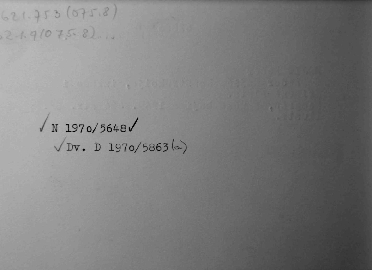 621.753(075.8)
62.1.9(075.8)...
✓ N 1970/5648 ✓
✓ Dv. D 1970/5863(2)